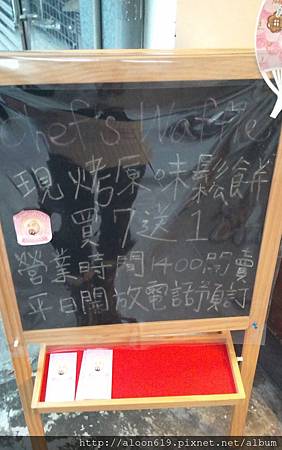 Chef's Waffle
現烤原味鬆餅
買7送1
營業時間1400開賣
平日開放電話預訂
http://aloon619.pixnet.net/album